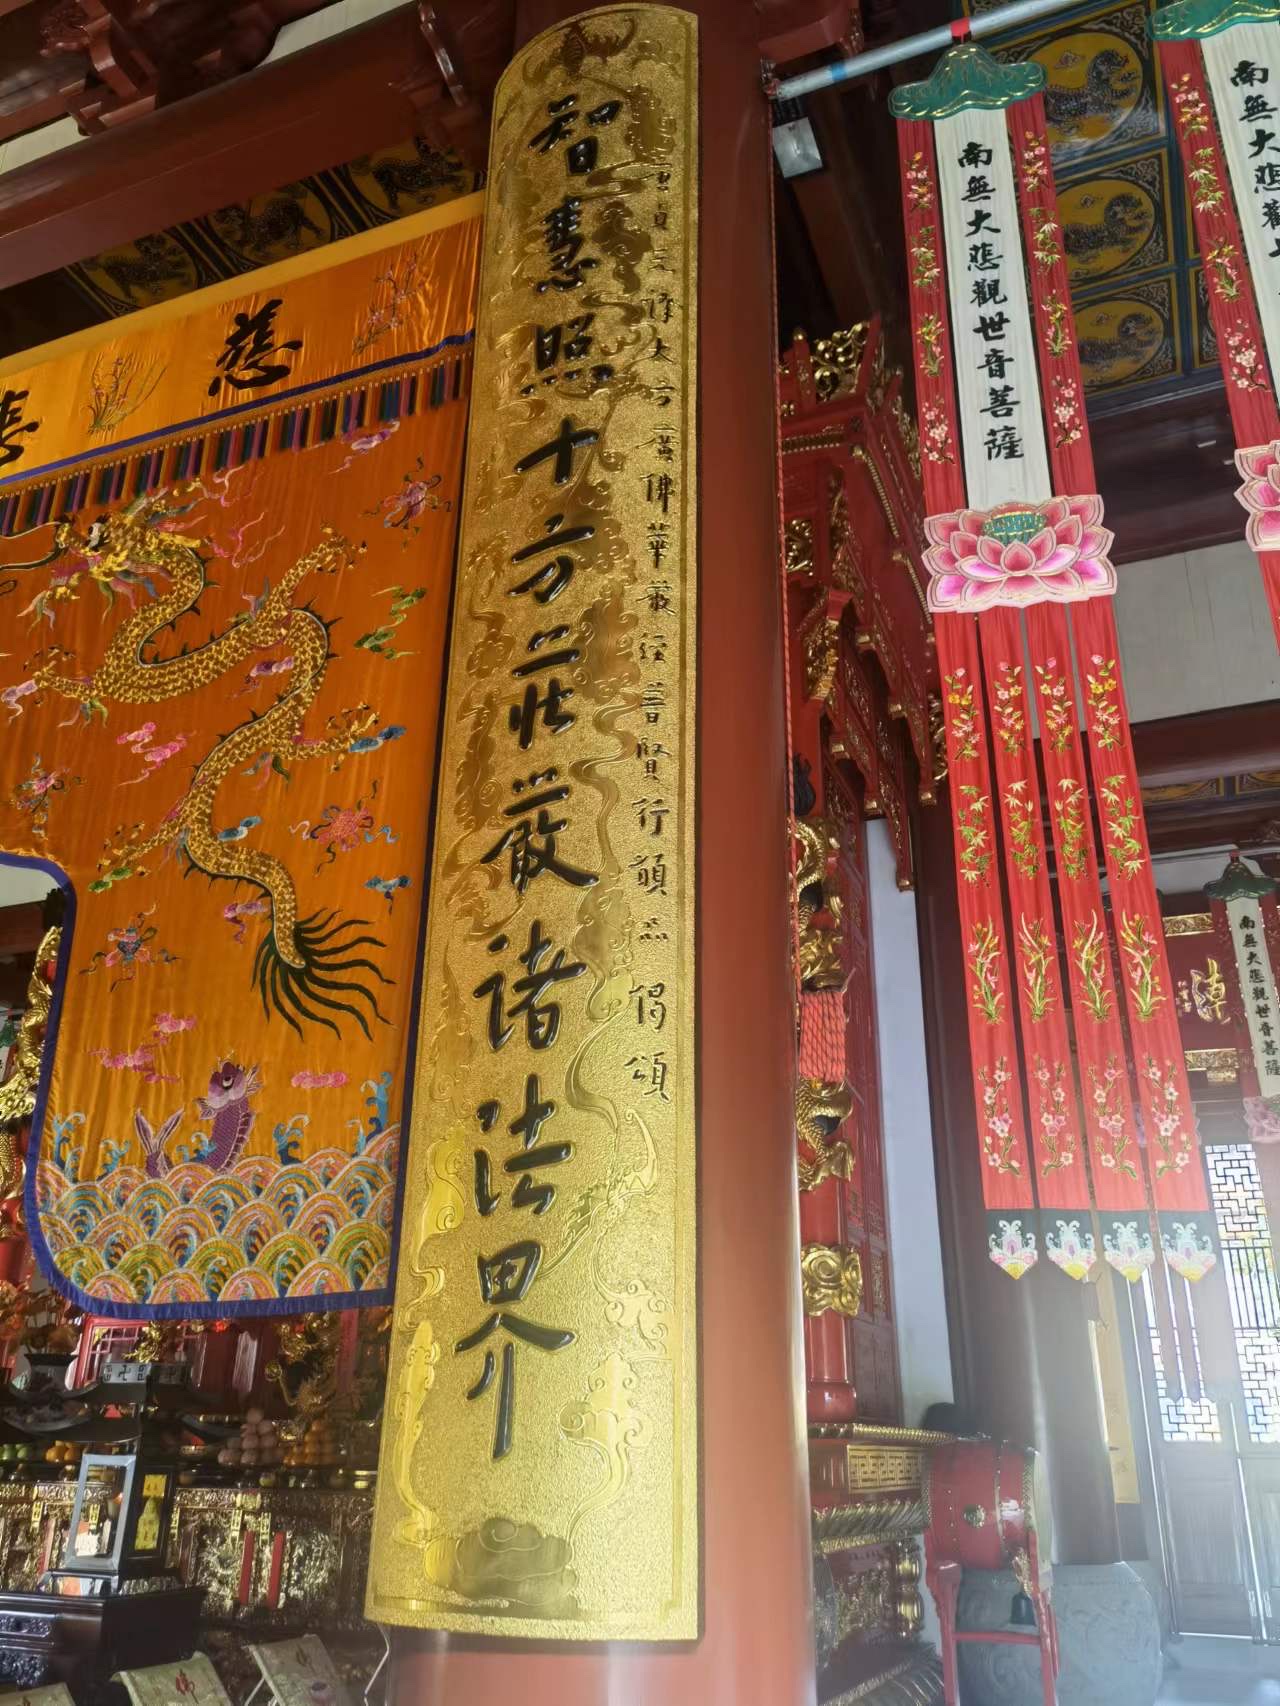 智慧照十方莊嚴諸法界
大方廣佛華嚴經普賢行願品偈頌
南無大悲觀世音菩薩
南無大悲觀
南無大悲觀世音菩薩
慈